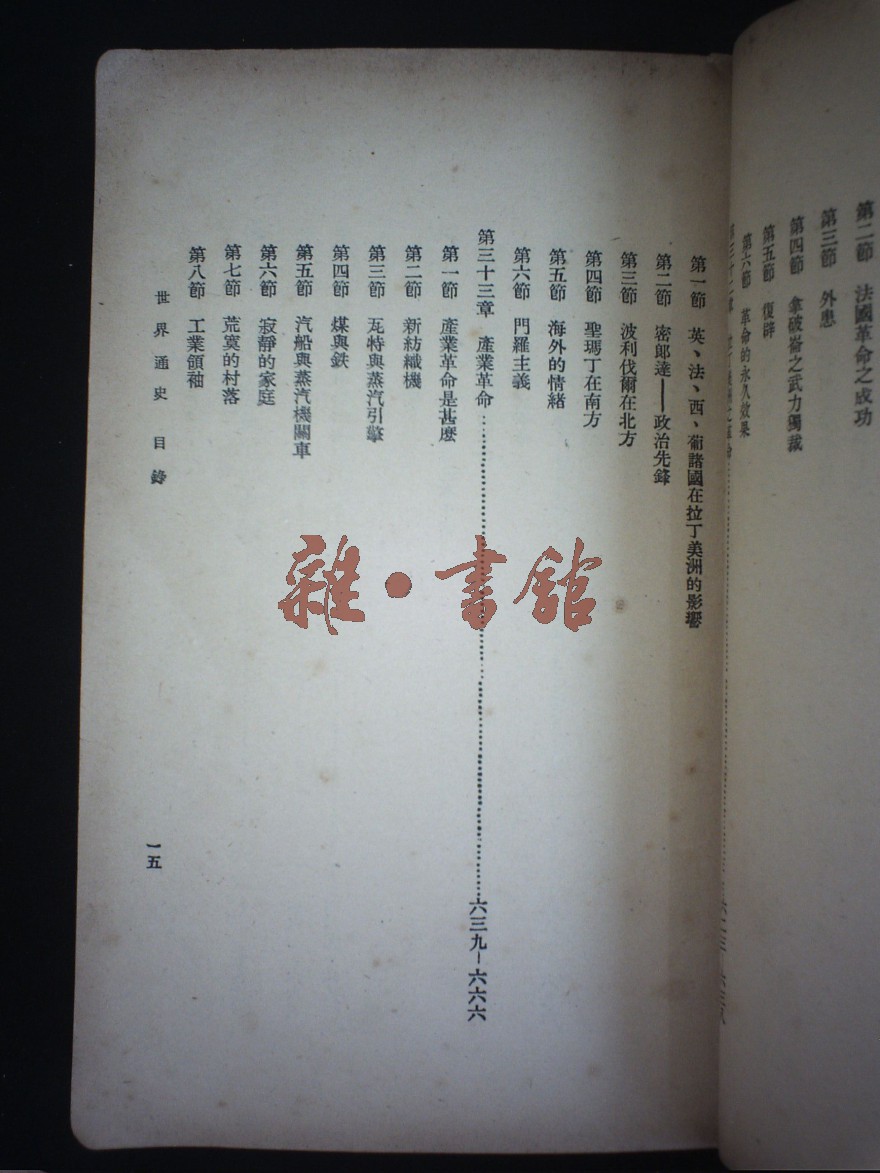 第二節 法國革命之成功
第三節 外患
第四節 拿破崙之武力獨裁
第五節 復辟
第六節 革命的永久效果
第一節 英、法、西、葡諸國在拉丁美洲的影響
第二節 密郎達——政治先鋒
第三節 波利伐爾在北方
第四節 聖瑪丁在南方
第五節 海外的情緒
第六節 門羅主義
第三十三章 產業革命……六三九—六六六
第一節 產業革命是甚麽
第二節 新紡織機
第三節 瓦特與蒸汽引擎
第四節 煤與鉄
第五節 汽船與蒸汽機關車
第六節 寂靜的家庭
第七節 荒寞的村落
第八節 工業領袖
世界通史 目錄
一五
雜·書館